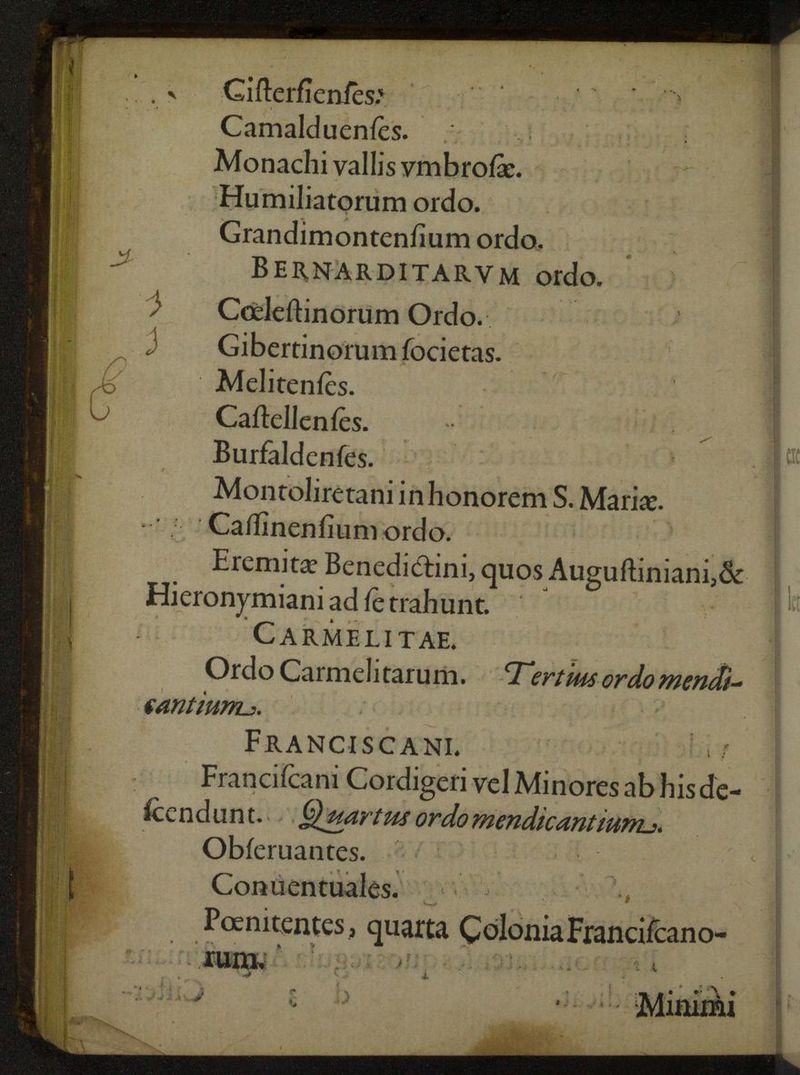 Ciſterſienſes.
Camalduenſes.
Monachi vallis vmbroſæ.
Humiliatorum ordo.
Grandimontenſium ordo.
BERNARDITARVM ordo.
Cœleſtinorum Ordo.
Gibertinorum ſocietas.
Melitenſes.
Caſtellenſes.
Burſaldenſes.
Montoliretani in honorem S. Mariæ.
Caſſinenſium ordo.
Eremitæ Benedictini, quos Auguſtiniani, &
Hieronymiani ad ſe trahunt.
CARMELITAE.
Ordo Carmelitarum. Tertius ordo mendi-
cantium.
FRANCISCANI.
Franciſcani Cordigeri vel Minores ab his de-
ſcendunt. Quartus ordo mendicantium.
Obſeruantes.
Conuentuales.
Pœnitentes, quarta Colonia Franciſcano-
rum.
Minimi